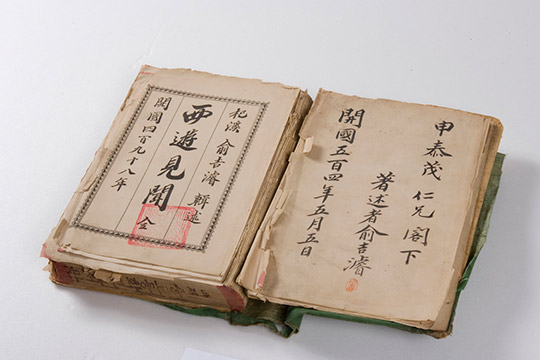 申泰茂 仁兄 閣下
著述者 俞吉濬
開國五百四年五月五日
杞溪 俞吉濬 輯述
西遊見聞 全
開國四百九十八年